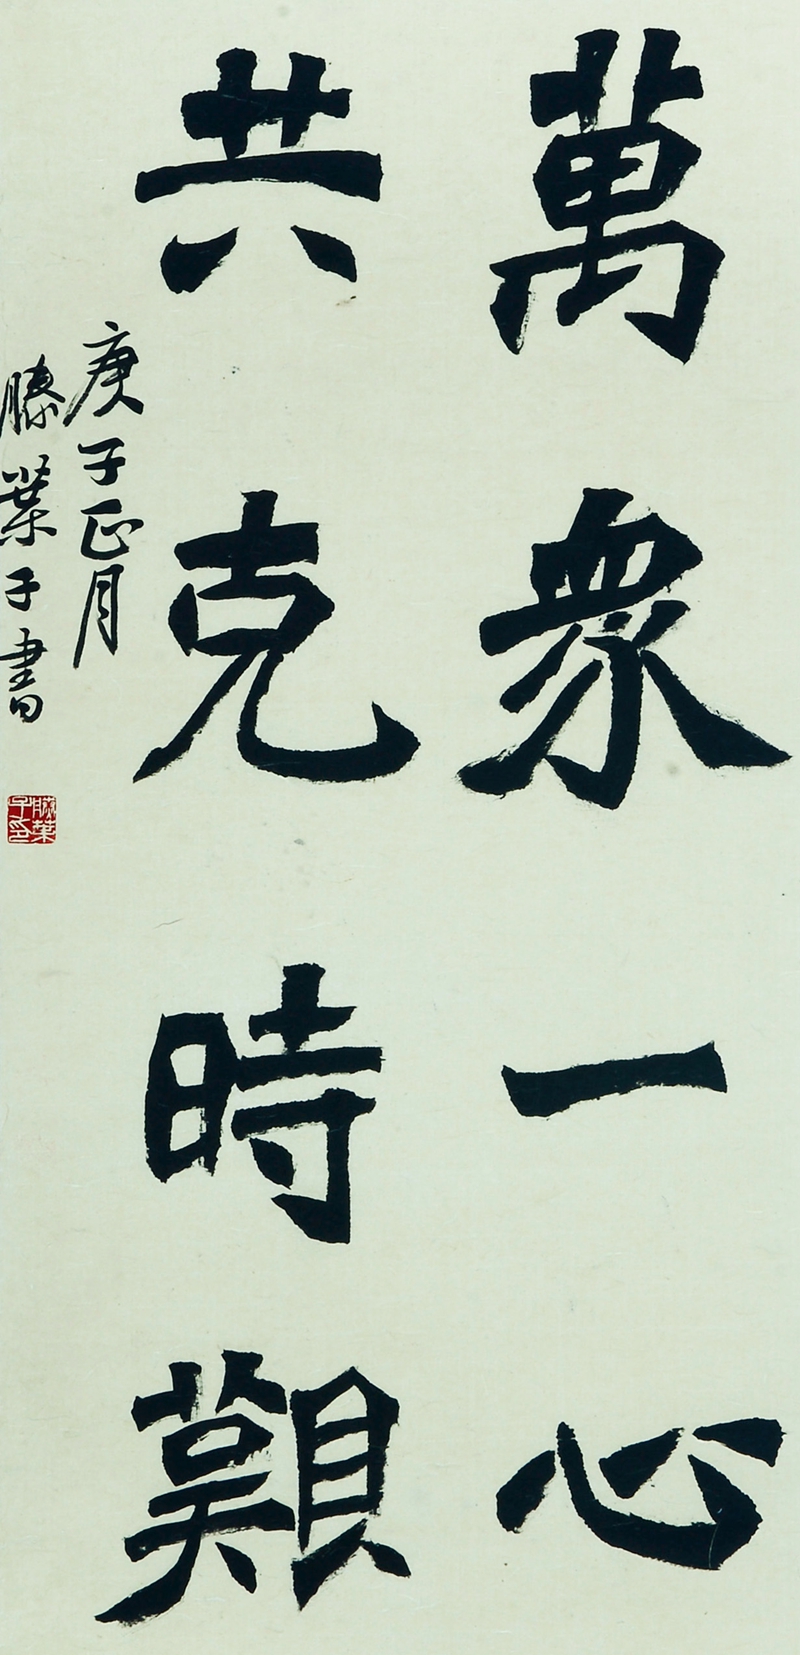 萬衆一心
共克時艱
庚子正月
滕葉子書
滕葉子印